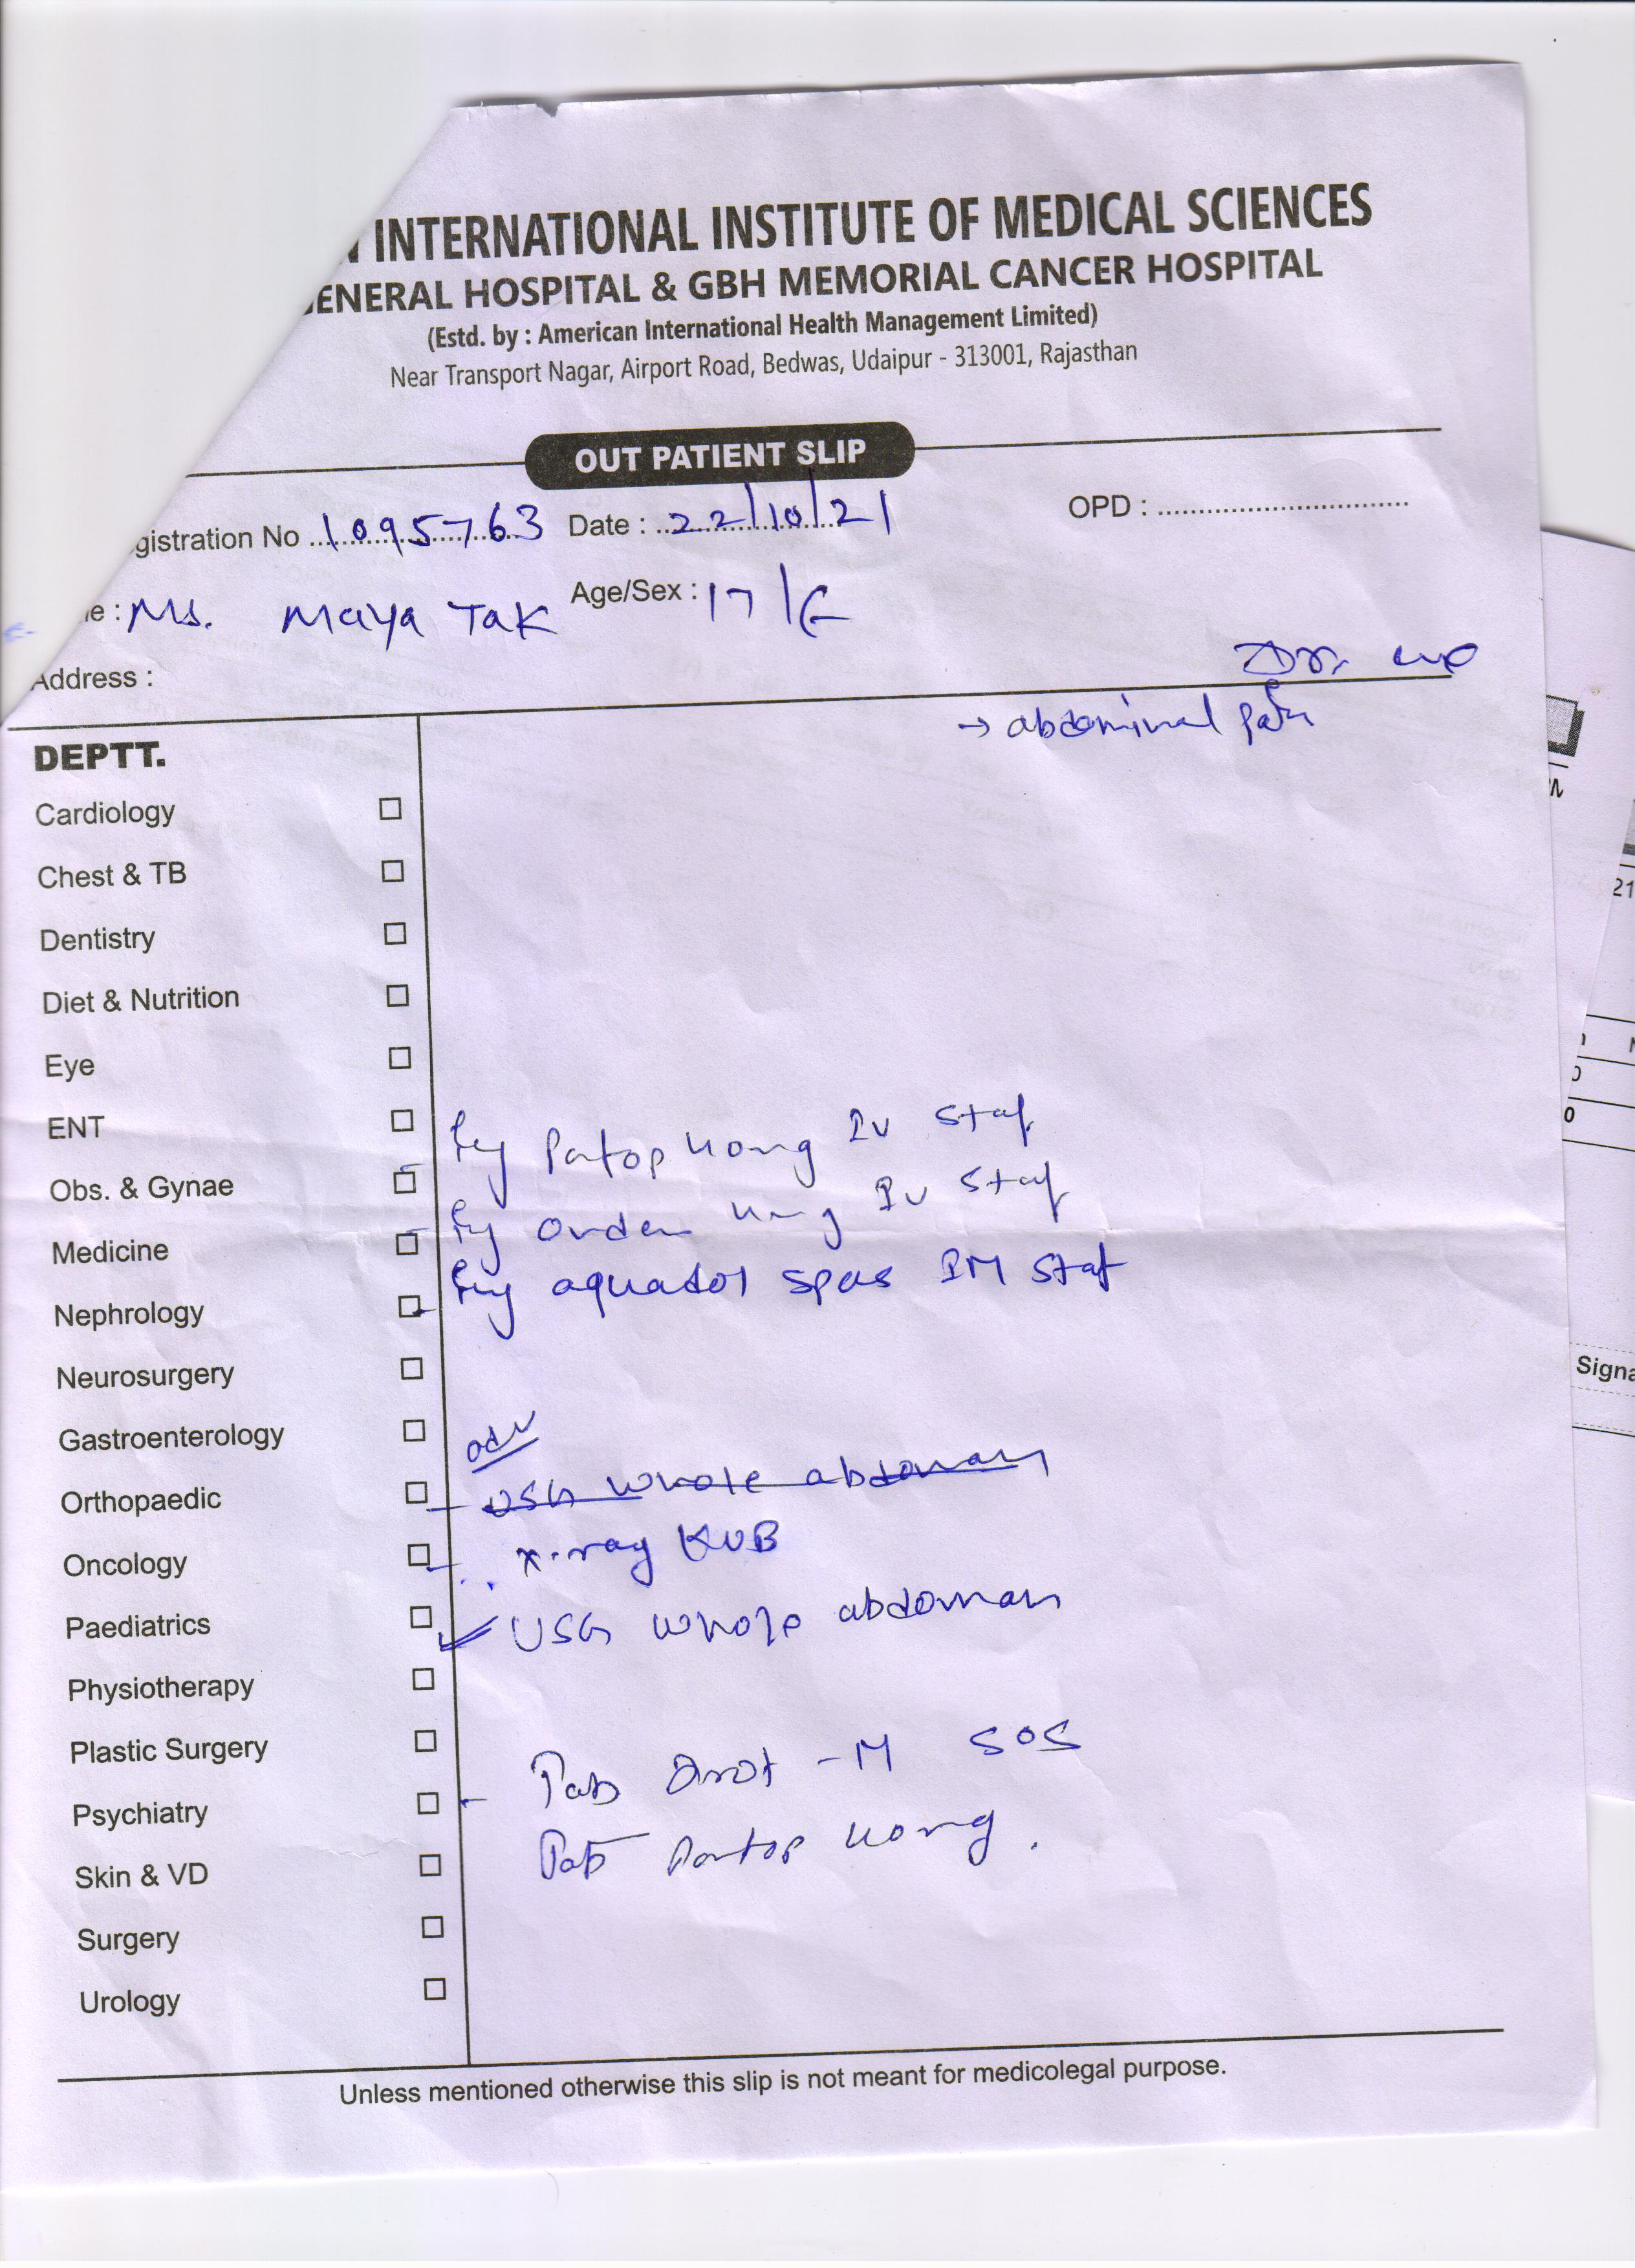 INTERNATIONAL INSTITUTE OF MEDICAL SCIENCES
ENERAL HOSPITAL & GBH MEMORIAL CANCER HOSPITAL
(Estd. by : American International Health Management Limited)
Near Transport Nagar, Airport Road, Bedwas, Udaipur - 313001, Rajasthan
OUT PATIENT SLIP
gistration No 1095763 Date : 22/10/21 OPD :
e : Ms. Maya Tak Age/Sex : 17/F
Address : Dr.
→ abdominal pain
DEPTT.
Cardiology
Chest & TB
Dentistry
Diet & Nutrition
Eye
ENT
Inj Pantop 40mg IV stat
Obs. & Gynae
Inj IV stat
Medicine
Inj aquadol spas IM stat
Nephrology
Neurosurgery
Gastroenterology
adv
USG whole abdomen
Orthopaedic
x-ray KUB
Oncology
USG whole abdomen
Paediatrics
Physiotherapy
Plastic Surgery
Tab -M SOS
Psychiatry
Tab Pantop 40mg.
Skin & VD
Surgery
Urology
Unless mentioned otherwise this slip is not meant for medicolegal purpose.
21
0
Signa